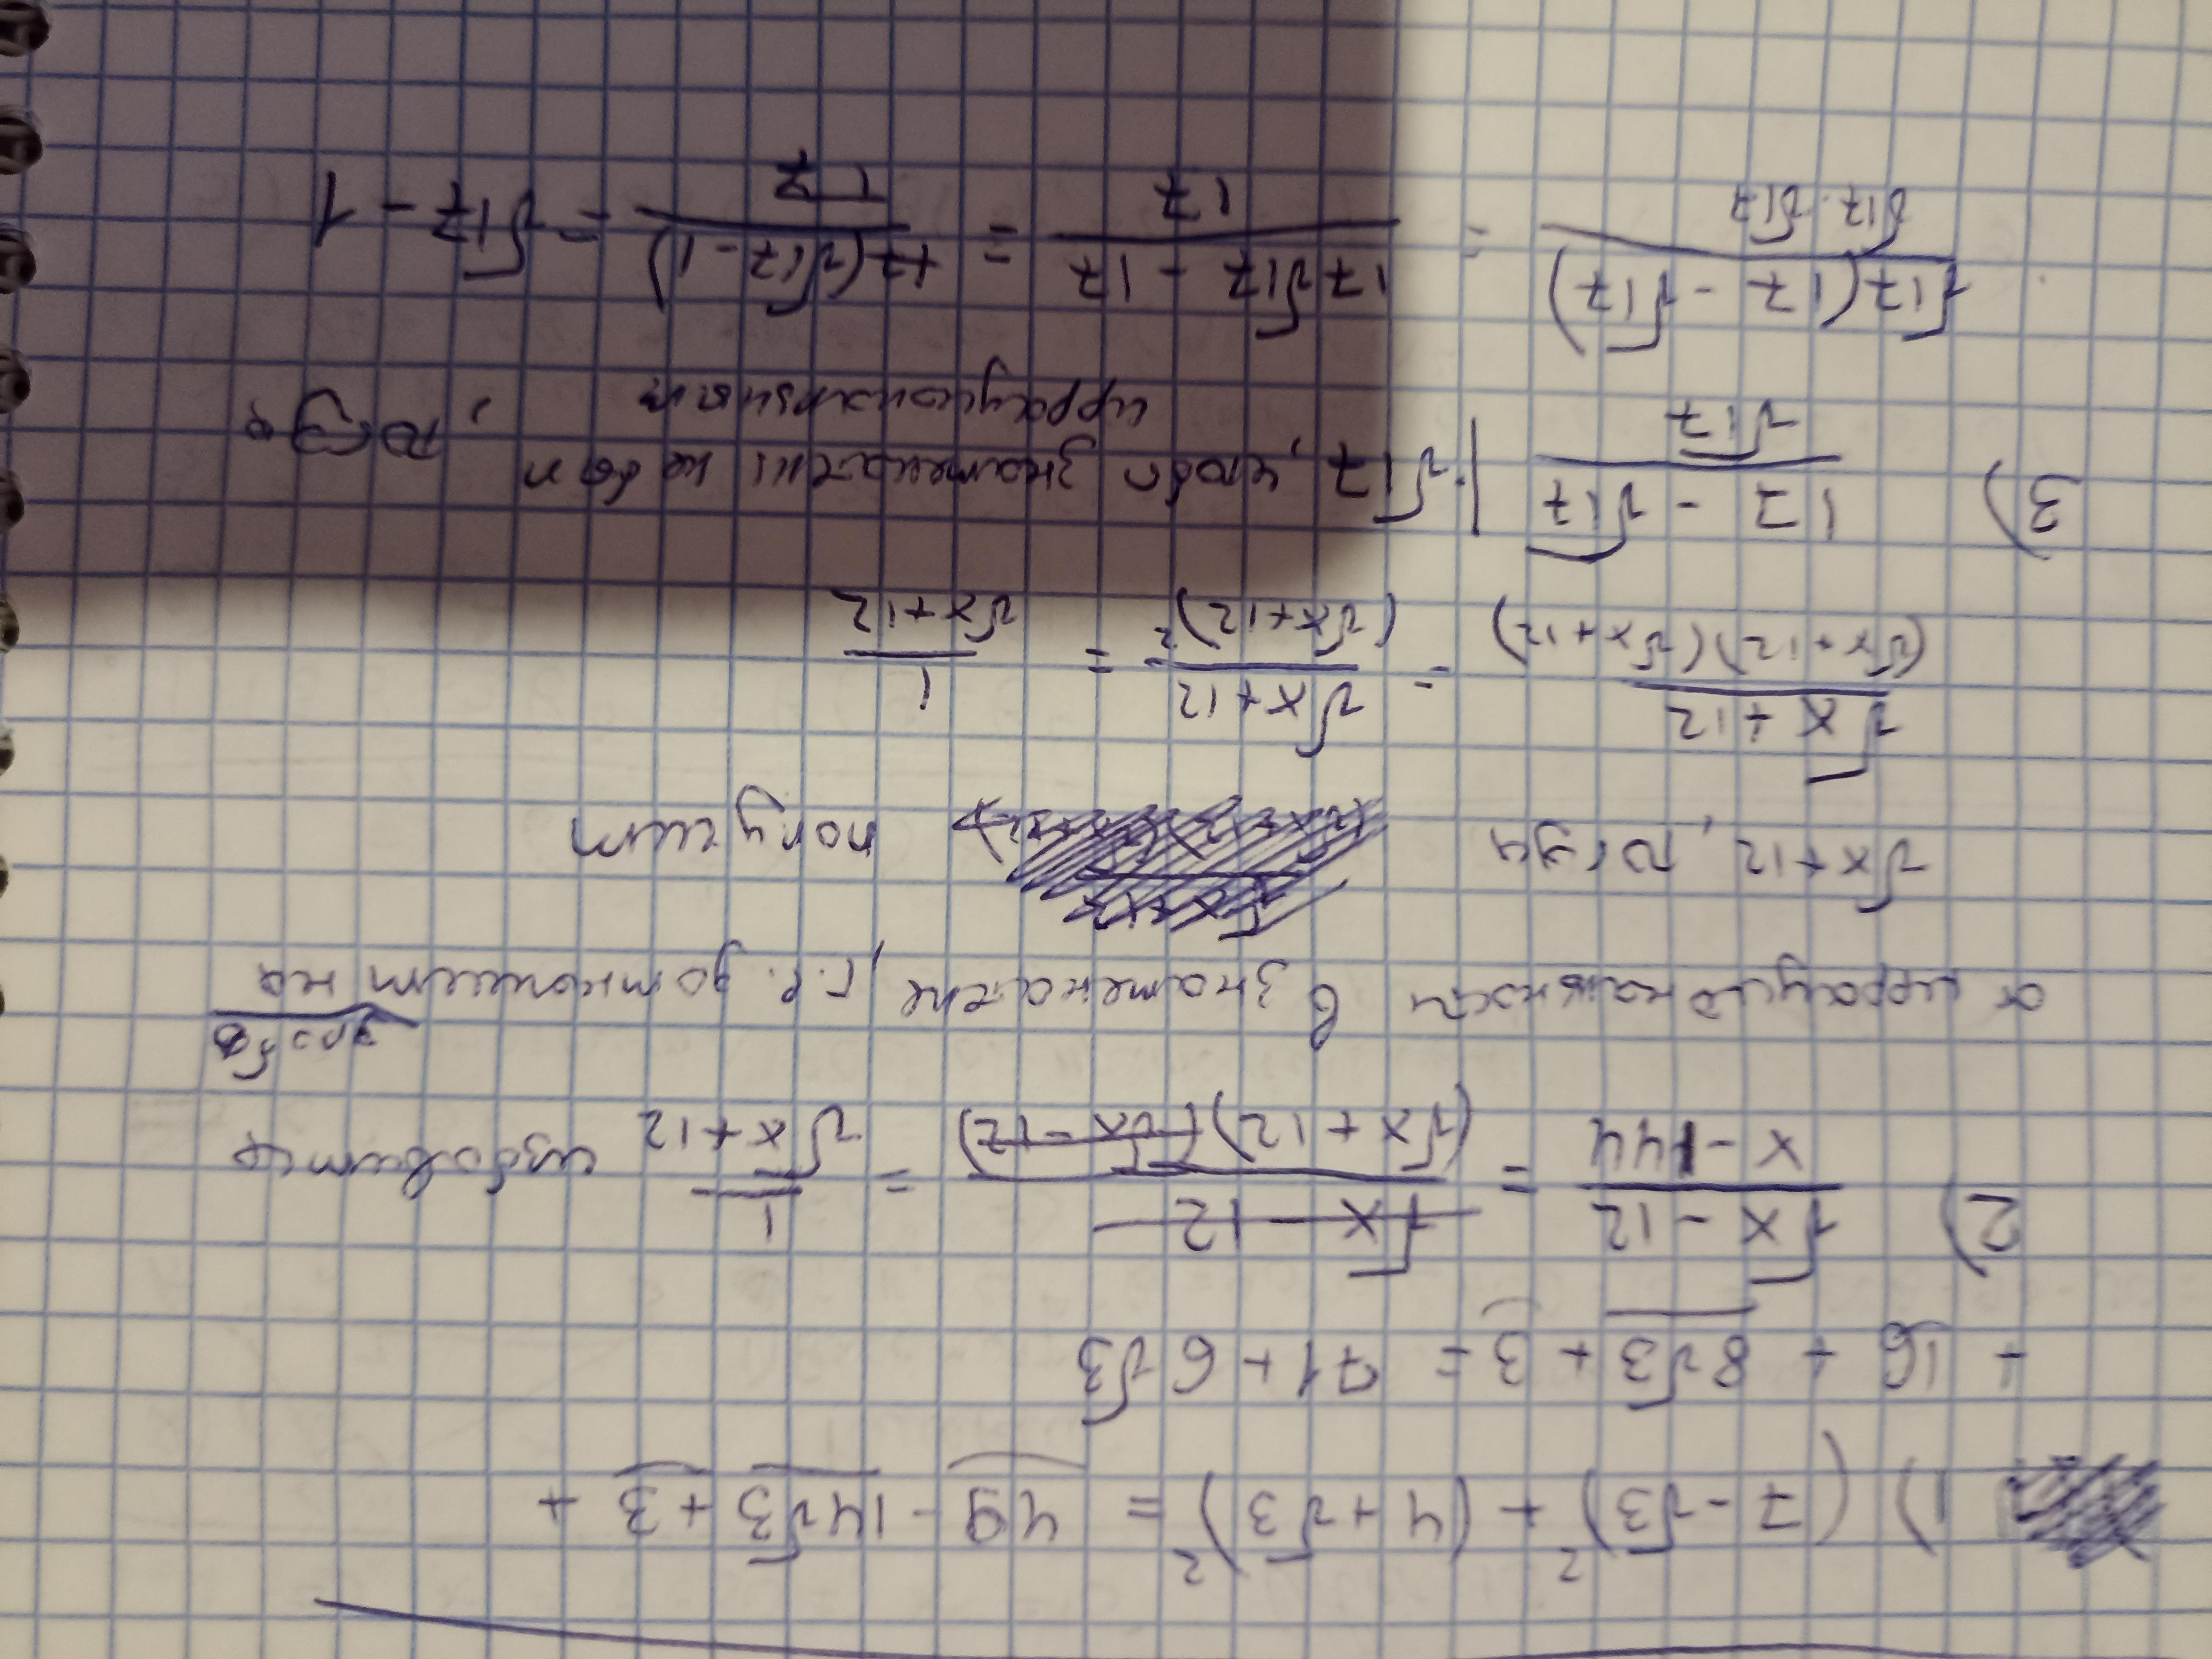 1) (7 - √3)² + (4 + √3)² = 49 - 14√3 + 3 +
+ 16 + 8√3 + 3 = 71 + 6√3
2) (√x - 12)/(x - 144) = (√x - 12)/((√x + 12)(√x - 12)) = 1/(√x + 12) избавимся
от иррациональности в знаменателе, т.е. домножим на
√x + 12, тогда получим
(√x + 12)/((√x + 12)(√x + 12)) = (√x + 12)/(√x + 12)² = 1/(√x + 12)
3) (17 - √17)/√17 | · √17, чтобы знаменатель не был
иррациональным, тогда
√17(17 - √17)/(√17 · √17) = (17√17 - 17)/17 = 17(√17 - 1)/17 = √17 - 1